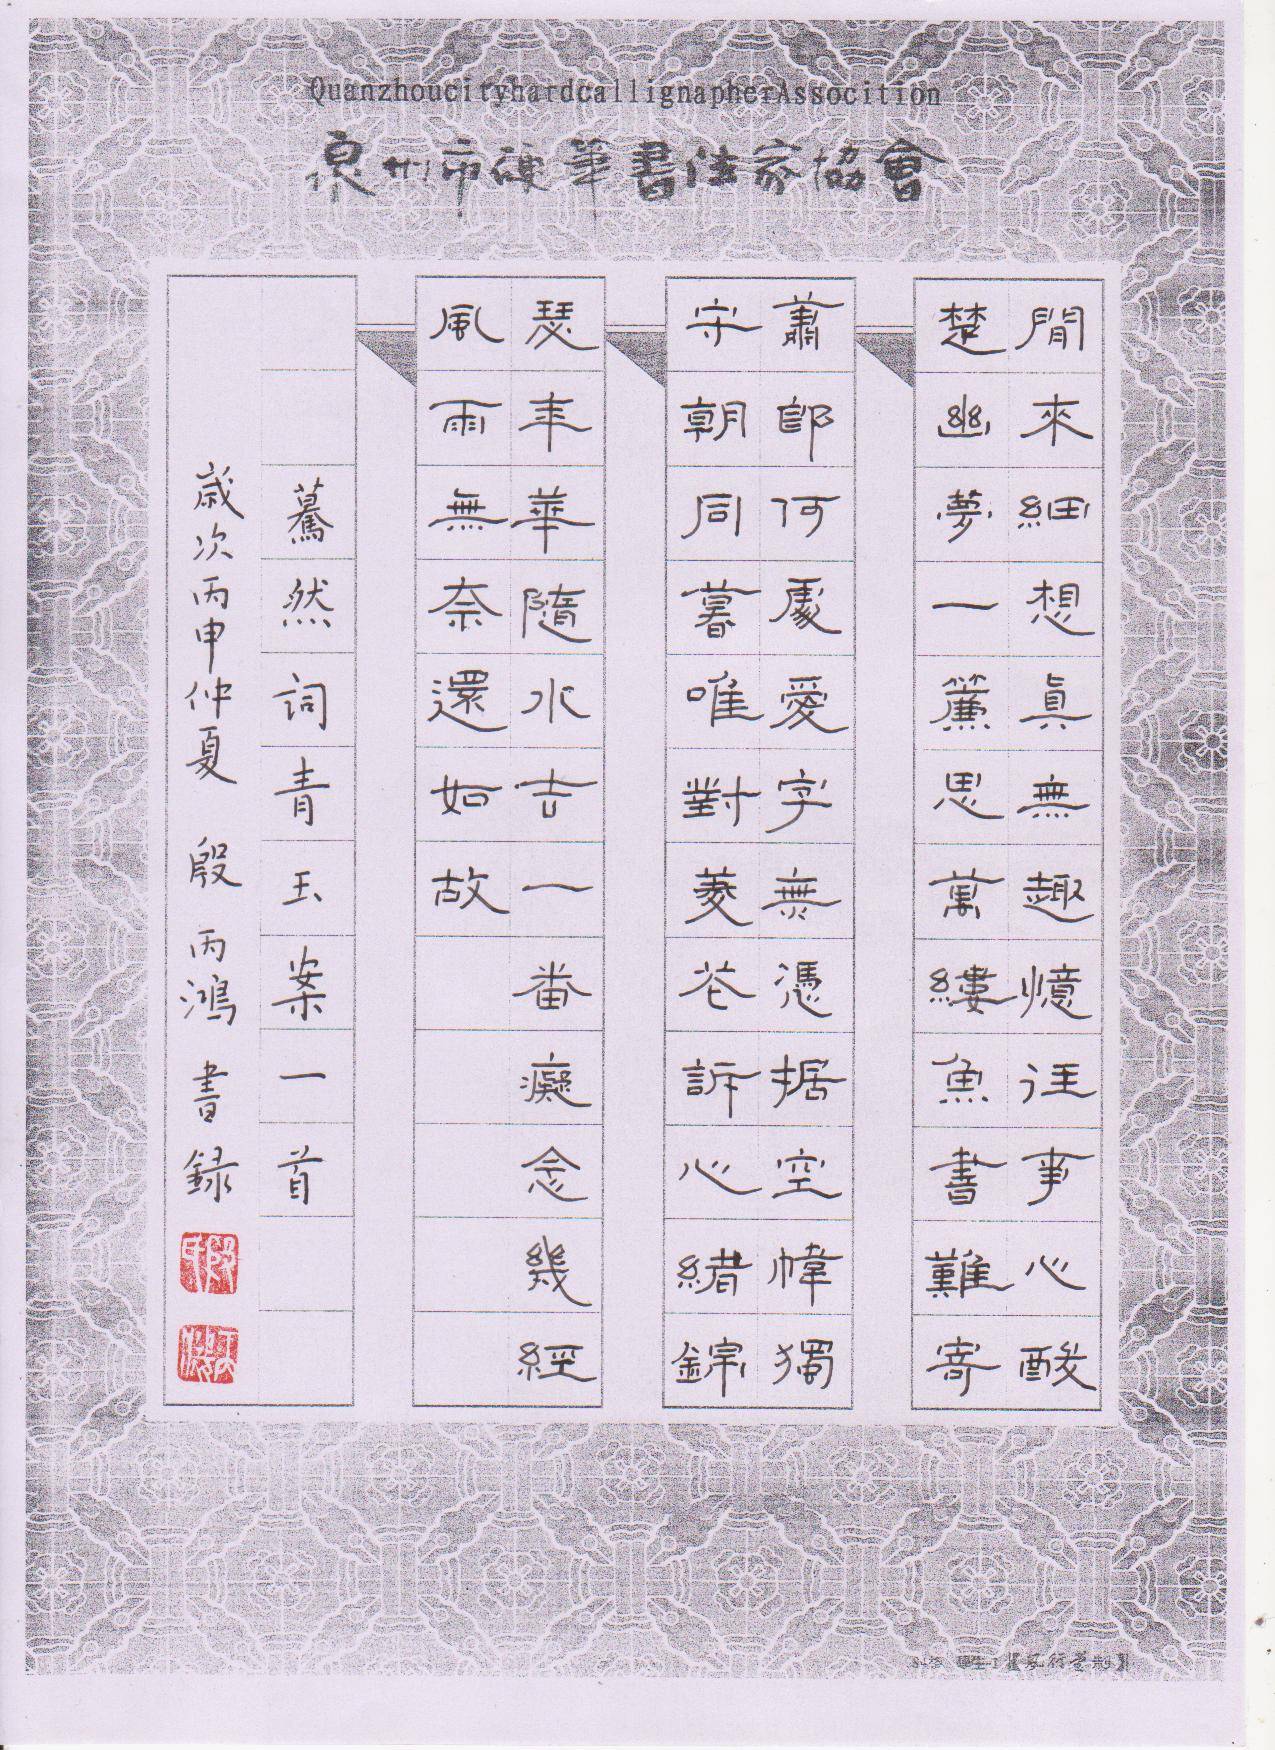 QuanzhoucityhardcallignapherAssocition
泉州市硬筆書法家協會
閒來細想真無趣憶往事心酸
楚幽夢一簾思萬縷魚書難寄
蕭郎何處愛字無憑据空幃獨
守朝同暮唯對菱花訴心緒錦
瑟年華隨水去一番癡念幾經
風雨無奈還如故
驀然詞青玉案一首
歲次丙申仲夏 殷丙鴻書録